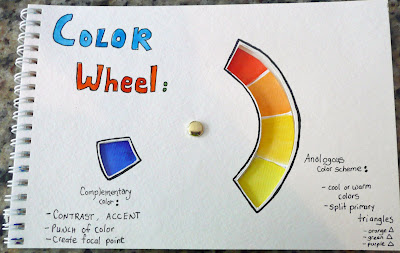 COLOR
Wheel:
Complementary
color:
- CONTRAST, ACCENT
- Punch of color
- Create focal point
Analogous
Color scheme:
- cool or warm
colors
- Split primary
triangles
- orange △
- green △
- purple △